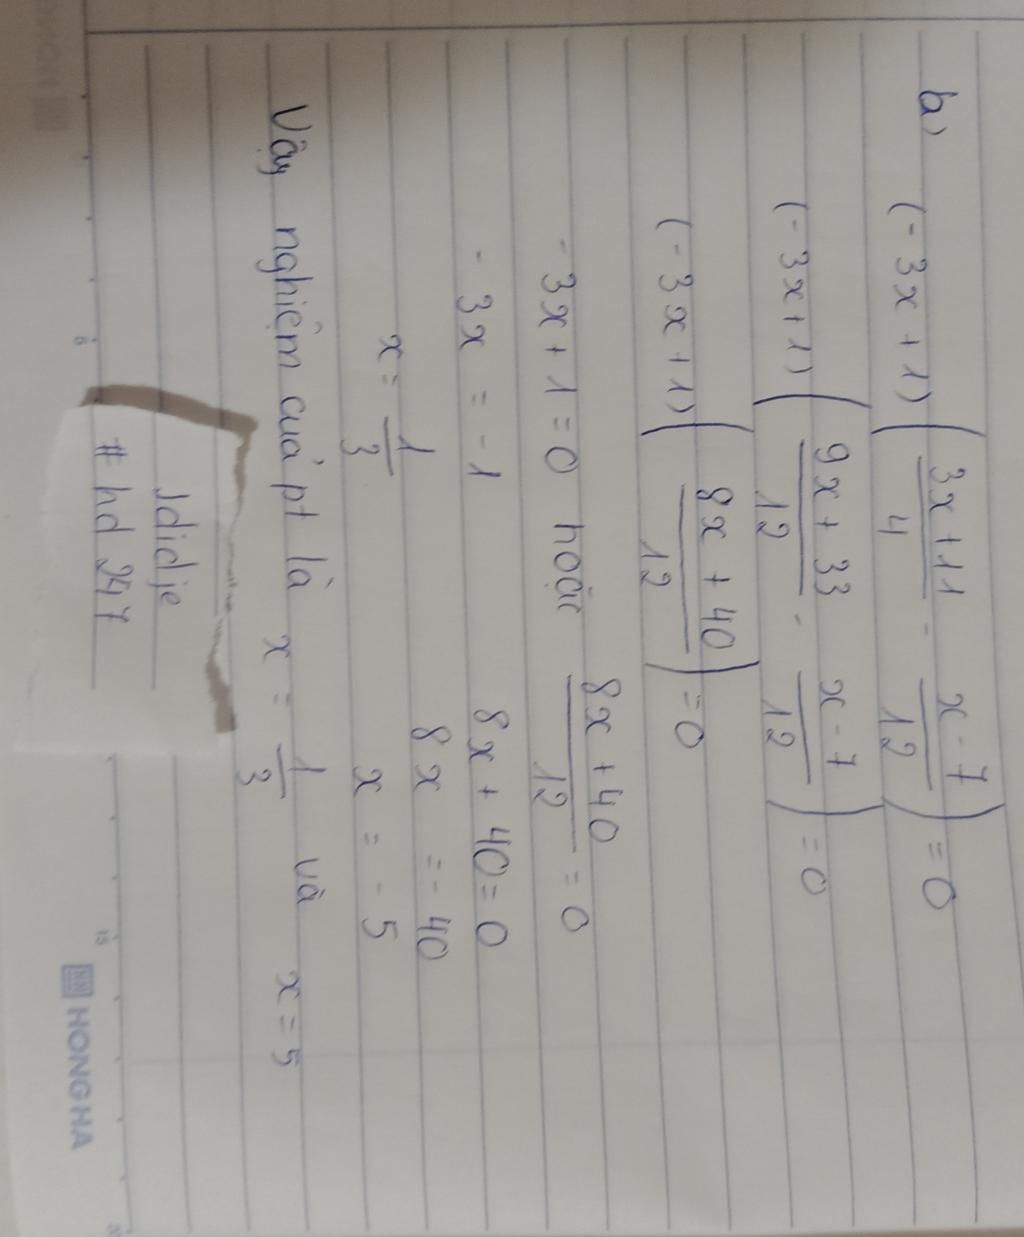 b) (-3x+1) ( \frac{3x+11}{4} - \frac{x-7}{12} ) = 0
(-3x+1) ( \frac{9x+33}{12} - \frac{x-7}{12} ) = 0
(-3x+1) ( \frac{8x+40}{12} ) = 0
-3x+1=0 hoặc \frac{8x+40}{12} = 0
-3x = -1 8x+40=0
8x = -40
x = \frac{1}{3} x = -5
Vậy nghiệm cuả pt là x = \frac{1}{3} và x = 5
Jdidje
# hd 247
5
15
HONG HA